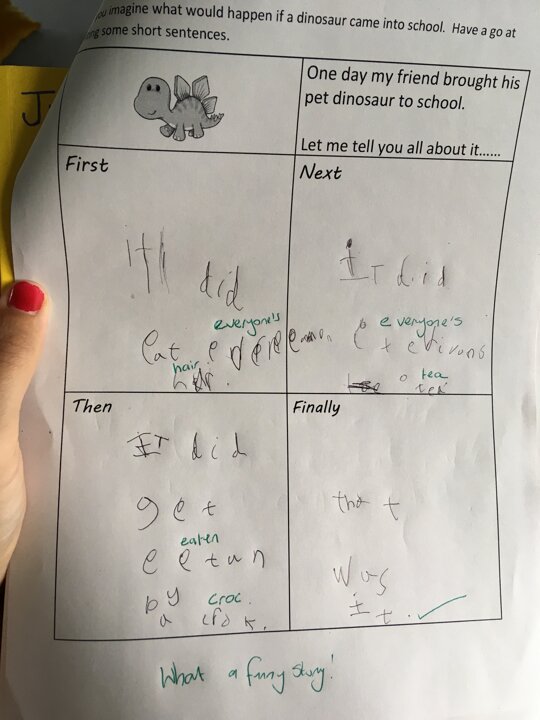 you imagine what would happen if a dinosaur came into school. Have a go at
some short sentences.
One day my friend brought his
pet dinosaur to school.
Let me tell you all about it......
First
did
everyone's
eat
hair
Next
IT did
everyone's
tea
Then
IT did
get
eaten
eetun
by croc.
a crok.
Finally
that
was
it.
What a funny story!